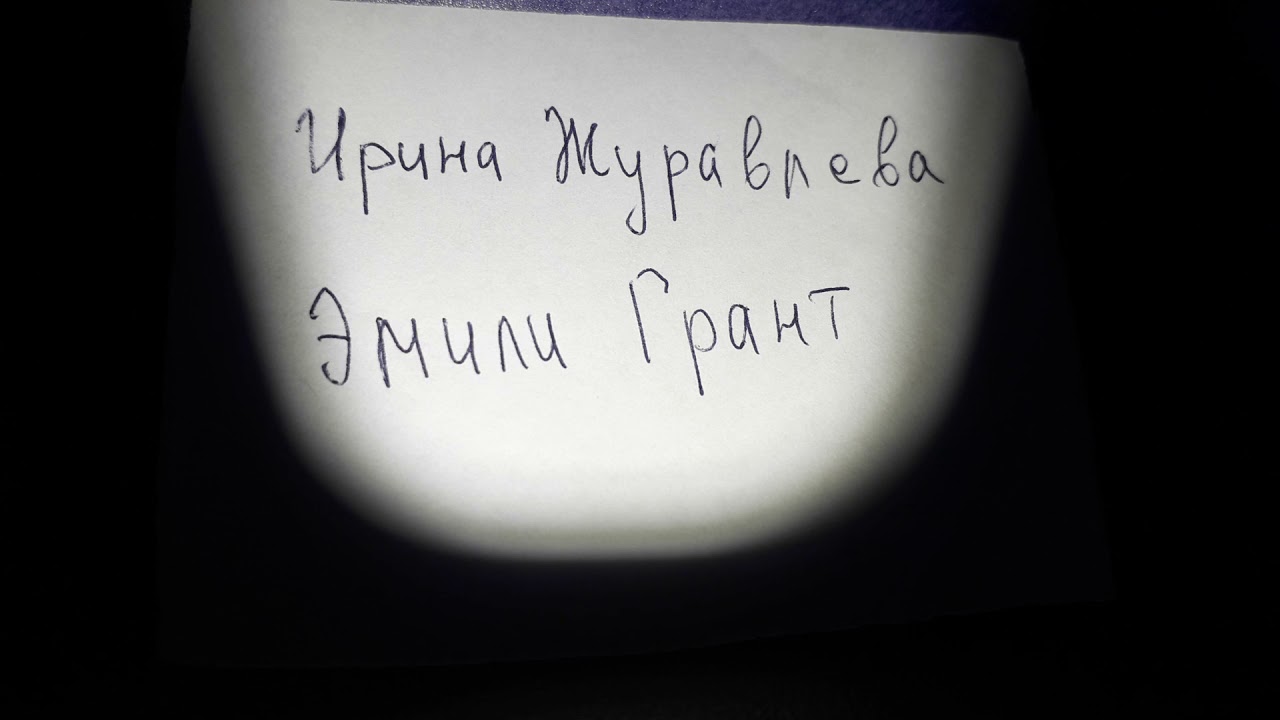 Ирина Журавлева
Эмили Грант